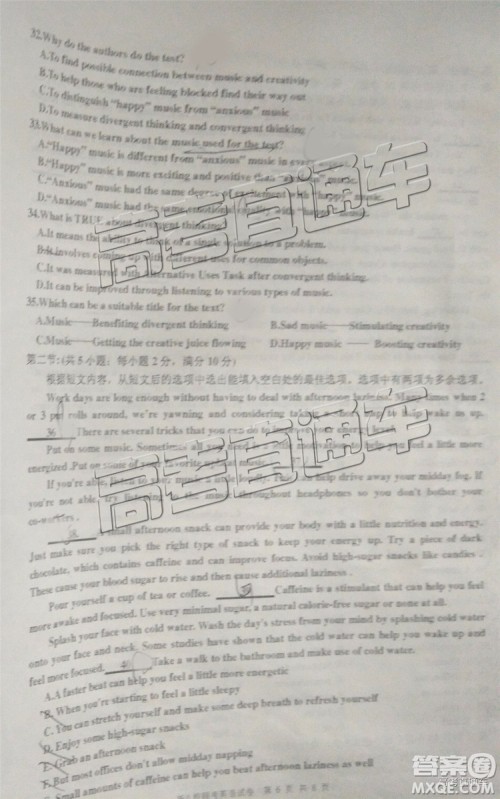 32.Why do the authors do the test?
A.To find possible connection between music and creativity
B.To help those who are feeling blocked find their way out
C.To distinguish "happy" music from "anxious" music
D.To measure divergent thinking and convergent thinking
33.What can we learn about the music used for the test?
A."Happy" music is different from "anxious" music in every
B."Happy" music is more exciting and positive than "anxious" music
C."Anxious" music had the same degree of excitement with "happy" music
D."Anxious" music had the same emotional quality with "happy" music
34.What is TRUE about divergent thinking?
A.It means the ability to think of a single solution to a problem.
B.It involves coming up with different uses for common objects.
C.It was measured with Alternative Uses Task after convergent thinking.
D.It can be improved through listening to various types of music.
35.Which can be a suitable title for the text?
A.Music——Benefiting divergent thinking B.Sad music——Stimulating creativity
C.Music——Getting the creative juice flowing D.Happy music——Boosting creativity
第二节:(共5小题;每小题2分,满分10分)
根据短文内容,从短文后的选项中选出能填入空白处的最佳选项。选项中有两项为多余选项。
Work days are long enough without having to deal with afternoon laziness. Many times when 2
or 3 pm rolls around, we're yawning and considering taking a to help wake us up.
36 There are several tricks that you can do to your energy level.
Put on some music. Sometimes all you need is a little motivation to help you feel more
energized. Put on some of your favorite up beat music.
If you're able, listen to music a little loudly. This help drive away your midday fog. If
you're not able, try listening to the music throughout headphones so you don't bother your
co-workers.
Small afternoon snack can provide your body with a little nutrition and energy.
Just make sure you pick the right type of snack to keep your energy up. Try a piece of dark
chocolate, which contains caffeine and can improve focus. Avoid high-sugar snacks like candies.
These cause your blood sugar to rise and then cause additional laziness.
Pour yourself a cup of tea or coffee. Caffeine is a stimulant that can help you feel
more awake and focused. Use very minimal sugar, a natural calorie-free sugar or none at all.
Splash your face with cold water. Wash the day's stress from your mind by splashing cold water
onto your face and neck. Some studies have shown that the cold water can help you wake up and
feel more focused. Take a walk to the bathroom and make use of cold water.
A.A faster beat can help you feel a little more energetic
B. When you're starting to feel a little sleepy
C. You can stretch yourself and make some deep breath to refresh yourself
D. Enjoy some high-sugar snacks
E. Grab an afternoon snack
F. But most offices don't allow midday napping
G. Small amounts of caffeine can help you beat afternoon laziness as well
高三直通车
高三直通车
答案圈
MXQE.COM